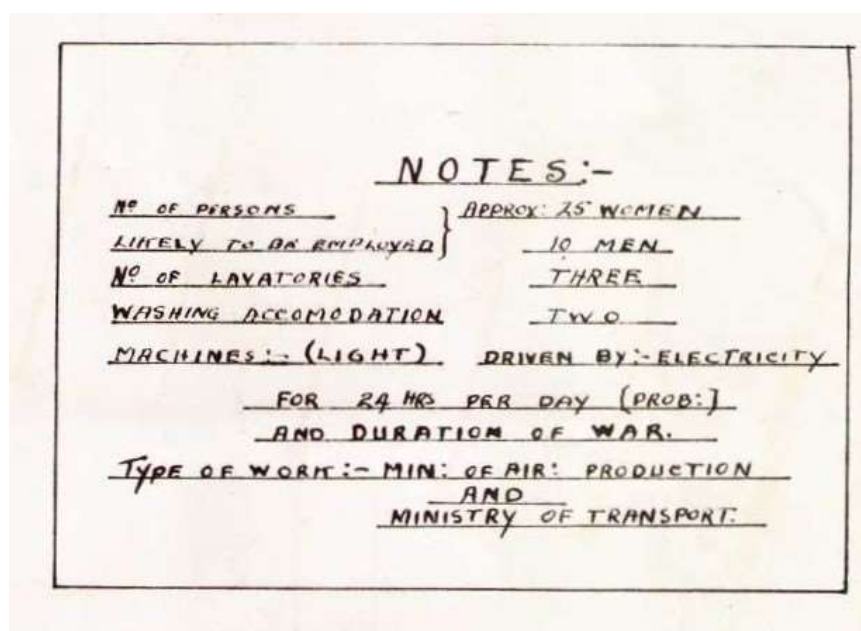 NOTES:-
No OF PERSONS } APPROX: 25 WOMEN
LIKELY TO BE EMPLOYED 10 MEN
No OF LAVATORIES THREE
WASHING ACCOMODATION TWO
MACHINES:- (LIGHT) DRIVEN BY:- ELECTRICITY
FOR 24 HRS PER DAY (PROB:)
AND DURATION OF WAR.
TYPE OF WORK:- MIN: OF AIR: PRODUCTION
AND
MINISTRY OF TRANSPORT.